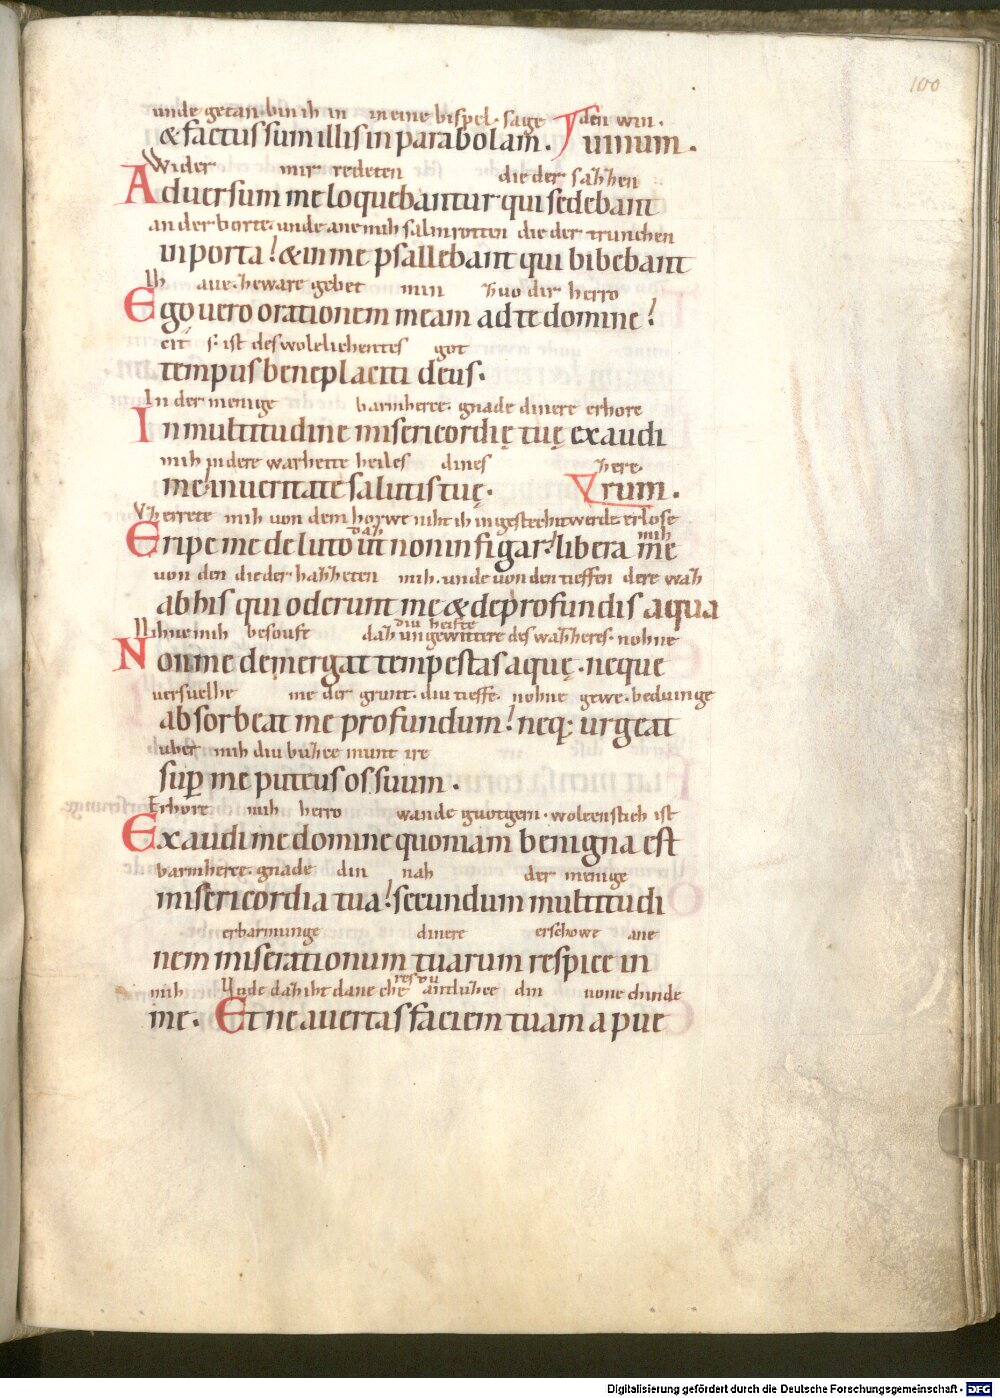 100
unde getan bin ih in in eine bispel. sage den win.
& factus sum illis in parabolam. uinum.
Wider mir redeten die der sahhen
Aduersum me loquebantur qui sedebant
an der borte. unde ane mih salmrotten die der trunchen
in porta! & in me psallebant qui bibebant
Ih aue. heware gebet min zuo dir herro
Ego uero orationem meam ad te domine!
cit s. ist des wolelichentes got
tempus beneplaciti deus.
In der menige barmherce. gnade dinere erhore
In multitudine misericordię tuę exaudi
mih in dere warhette heiles dines here.
me! in ueritate salutis tuę. rum.
errete mih uon dem horwe daz niht ih ingestechet werde erlose mih
Eripe me de luto ut non infigar! libera me
uon den die der hahheten mih. unde uon den tieffen dere wah
ab his qui oderunt me & de profundis aqua
Nihne mih besoufe dah ungewittere diu heiste des wahheres. nohne
Non me demergat tempestas aquę. neque
uersuelhe me der grunt. diu tieffe. nohne gewe. beduinge
absorbeat me profundum! neq; urgeat
uber mih diu buhce munt ire
sup me puteus os suum.
Erhore mih herro wande guotgern. woleenstich ist
Exaudi me domine quoniam benigna est
barmherce. gnade din nah der menige
misericordia tua! secundum multitudi
erbarmunge dinere erschowe ane
nem miserationum tuarum respice in
mih Unde dah iht dane chere antluhce din uone chinde
me. Et ne auertas faciem tuam a pue
Digitalisierung gefördert durch die Deutsche Forschungsgemeinschaft - DFG